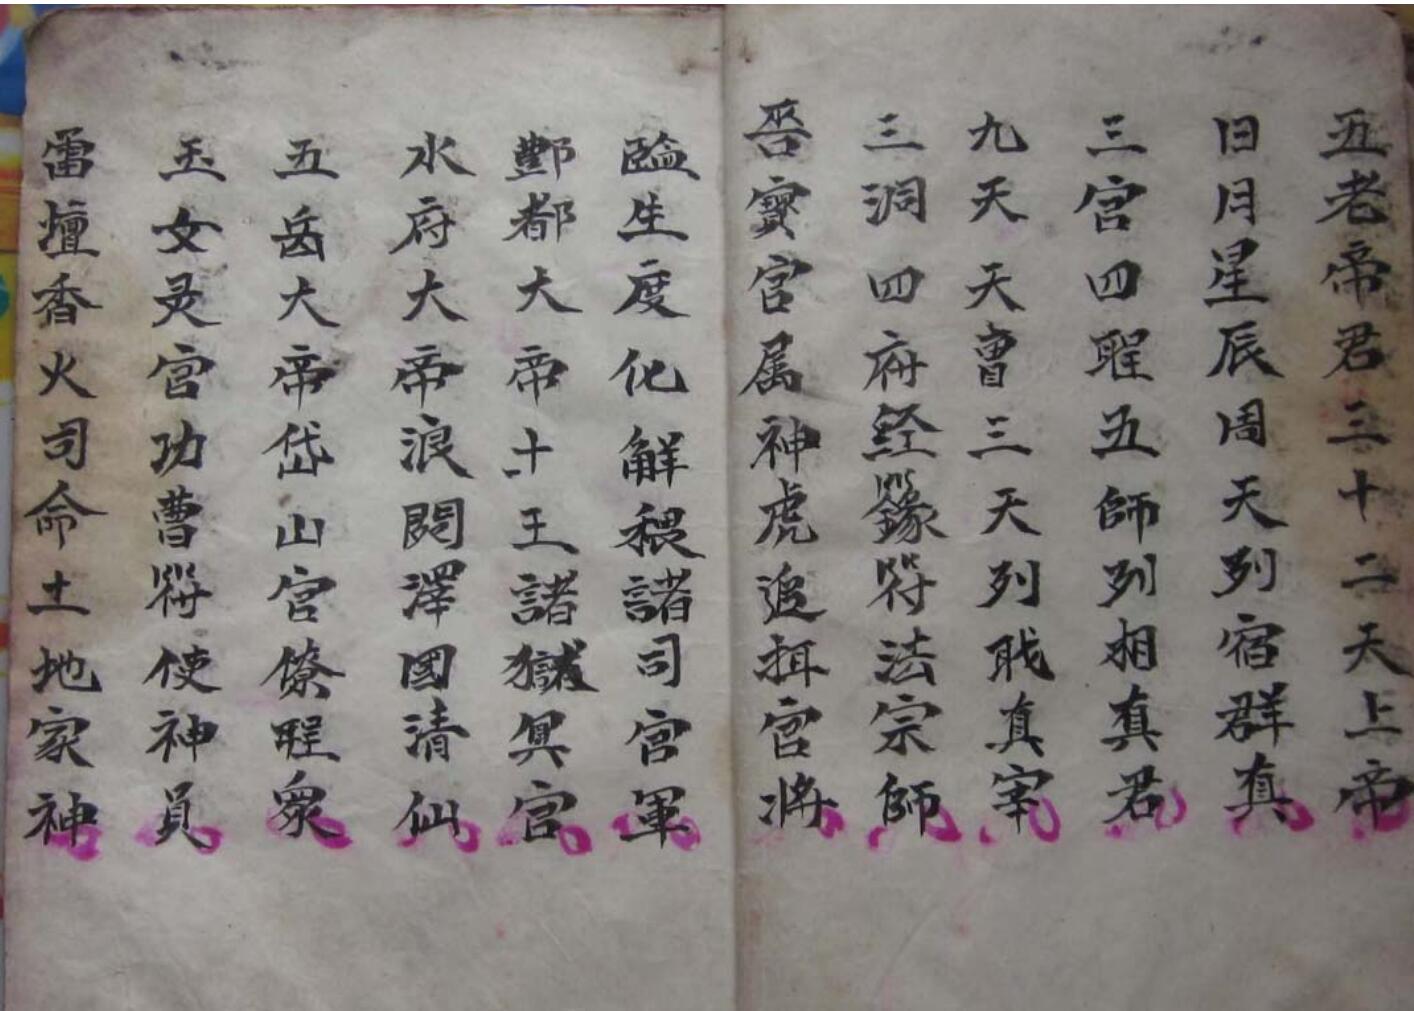 五老帝君三十二天上帝
日月星辰周天列宿群真
三官四聖五師列相真君
九天天曹三天列职真宰
三洞四府経籙符法宗師
呑宝官属神虎追摂官将
監生度化解穢諸司官軍
酆都大帝十王諸獄冥官
水府大帝浪閼澤國清仙
五岳大帝岱山宫僚聖衆
玉女灵官功曹符使神員
雷壇香火司命土地家神